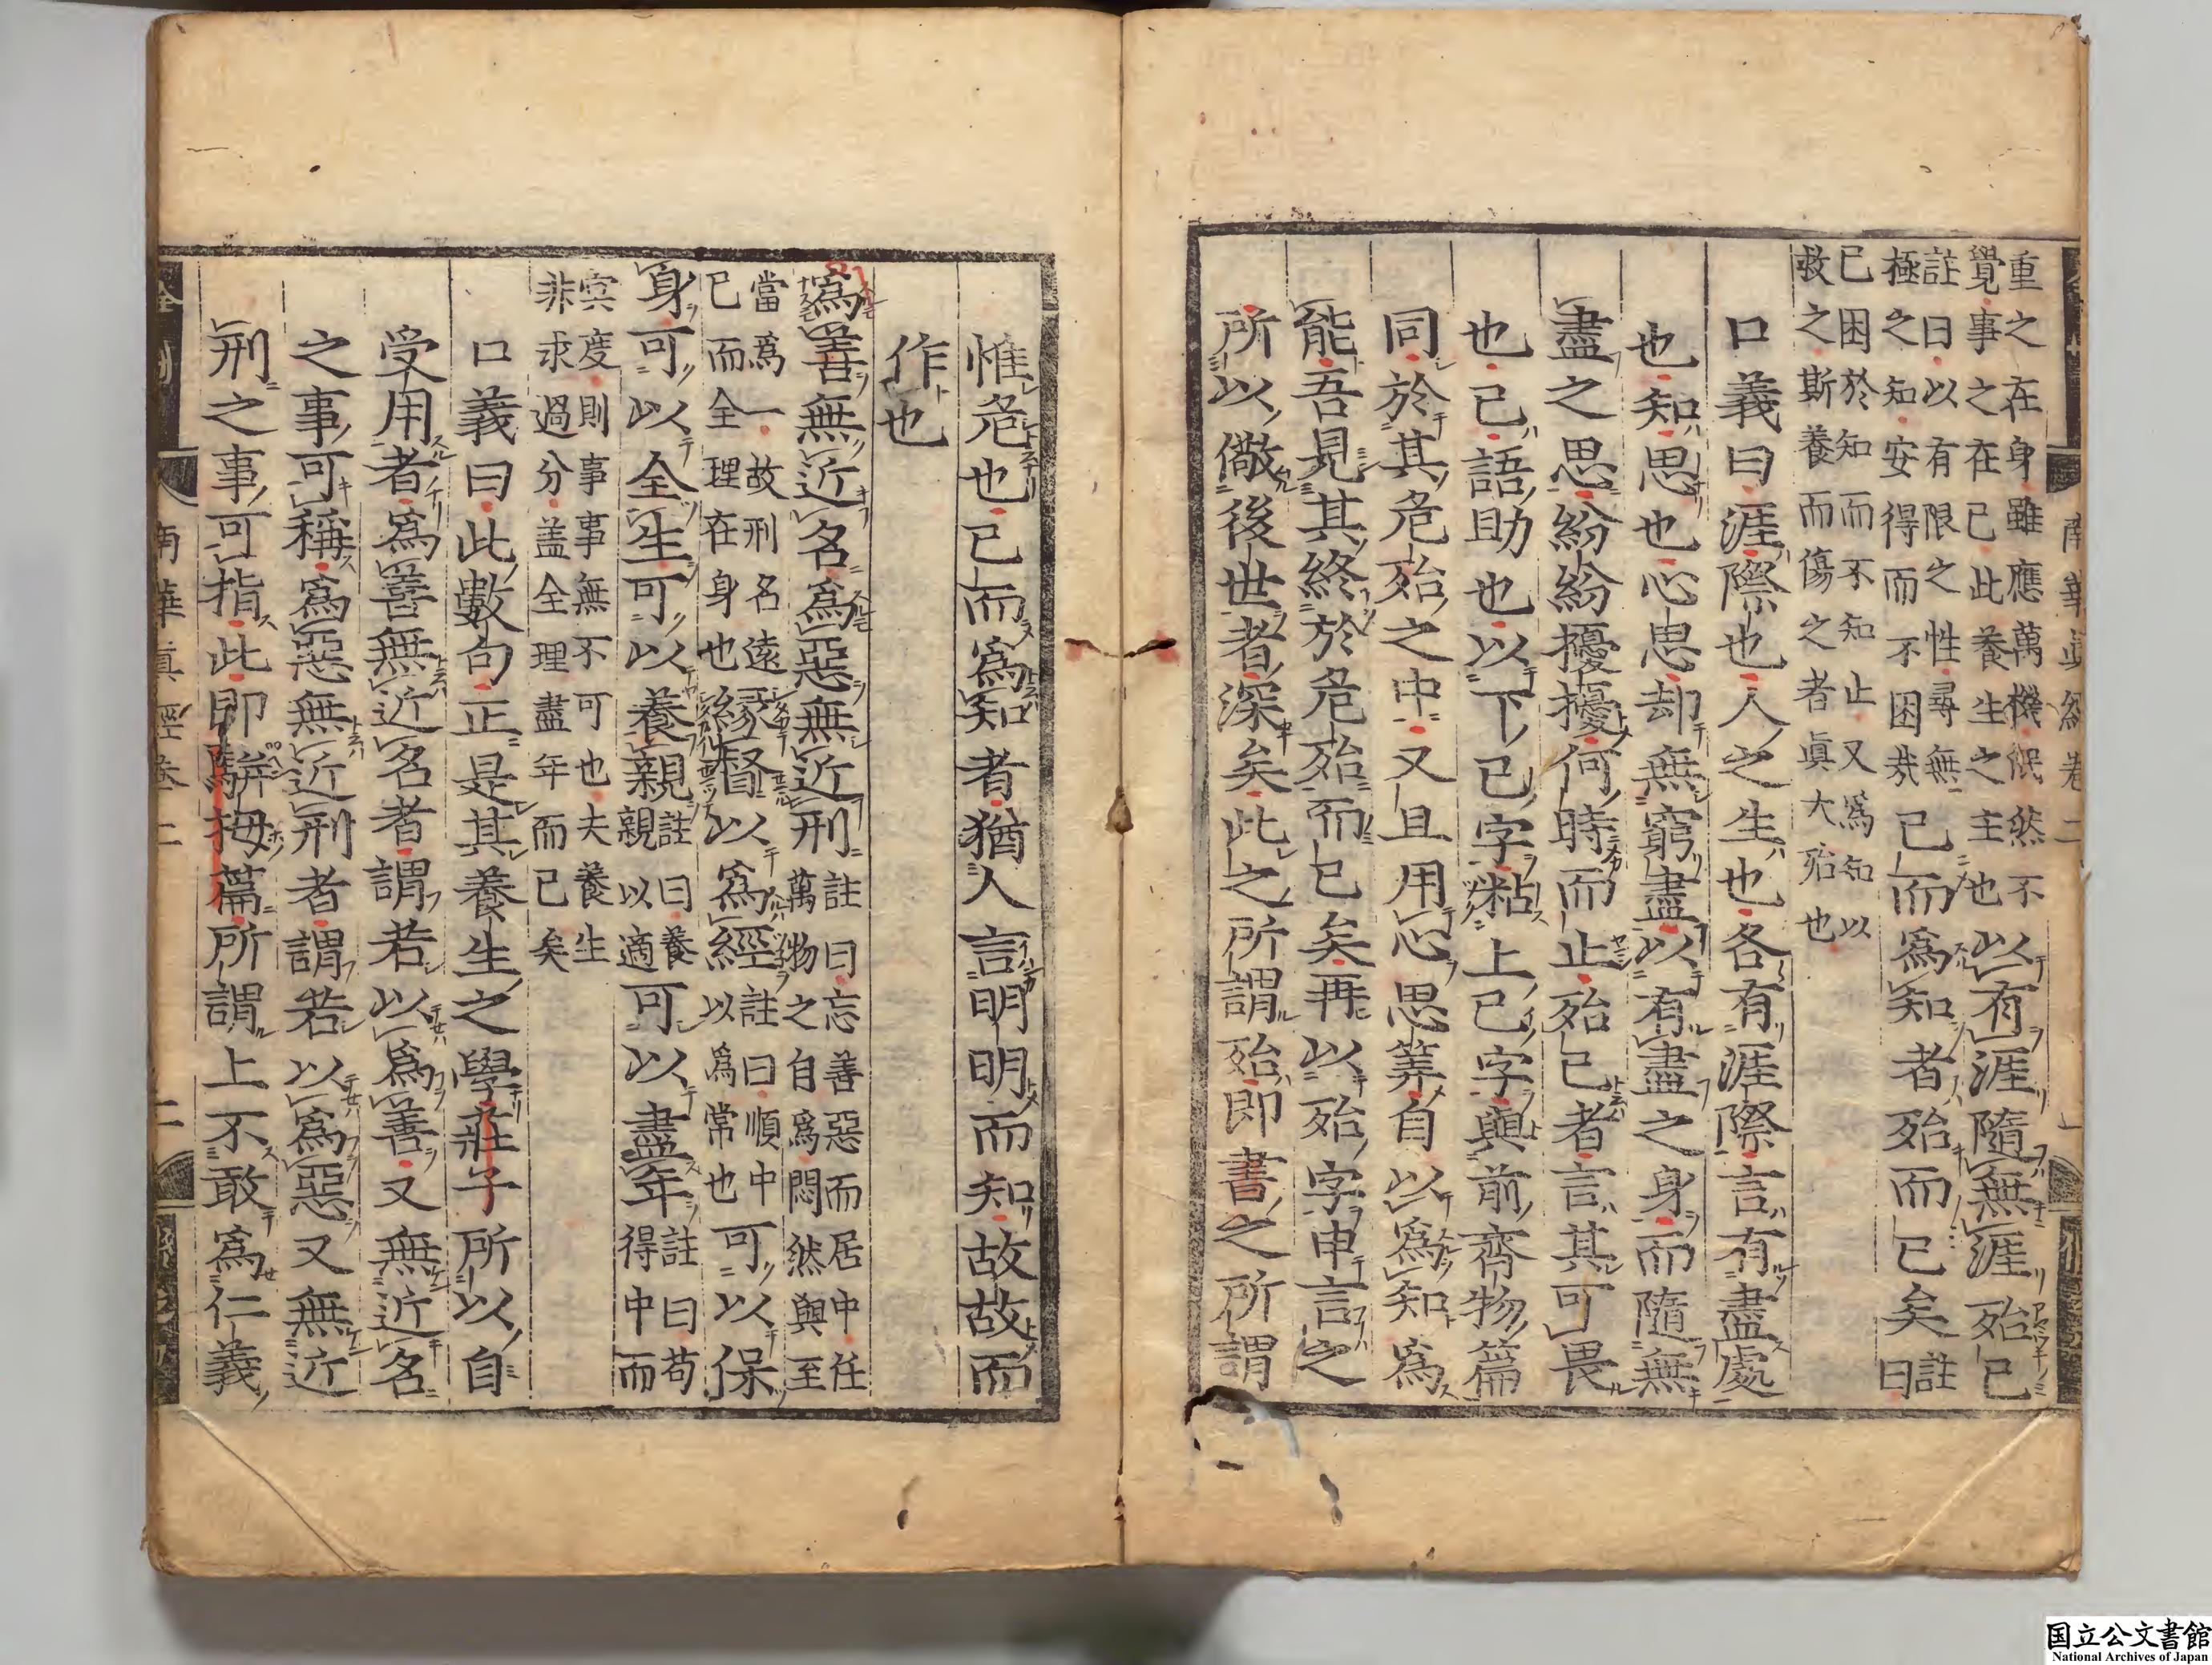 重之在身雖應萬機泯然不覺事之在己此養生之主也以有涯隨無涯殆已
註曰以有限之性尋無極之知安得而不困哉已而爲知者殆而已矣註曰
已困於知而不知止又爲知以救之斯養而傷之者眞大殆也
口義曰涯際也人之生也各有涯際言有盡處
也知思也心思却無窮盡以有盡之身而隨無
盡之思紛紛擾擾何時而止殆已者言其可畏
也已語助也以下已字粘上已字與前齊物篇
同於其危殆之中又且用心思筭自以爲知爲
能吾見其終於危殆而已矣再以殆字申言之
所以儆後世者深矣此之所謂殆即書之所謂
惟危也已而爲知者猶人言明明而知故故而
作也
爲善無近名爲惡無近刑註曰忘善惡而居中任萬物之自爲悶然與至
當爲一故刑名遠己而全理在身也緣督以爲經註曰順中以爲常也可以保
身可以全生可以養親註曰養親以適可以盡年註曰苟得中而
㝠度則事事無不可也夫養生非求過分盖全理盡年而已矣
口義曰此數句正是其養生之學莊子所以自
受用者爲善無近名者謂若以爲善又無近名
之事可稱爲惡無近刑者謂若以爲惡又無近
刑之事可指此即騈拇篇所謂上不敢爲仁義
南華眞經卷二
二
国立公文書館
National Archives of Japan